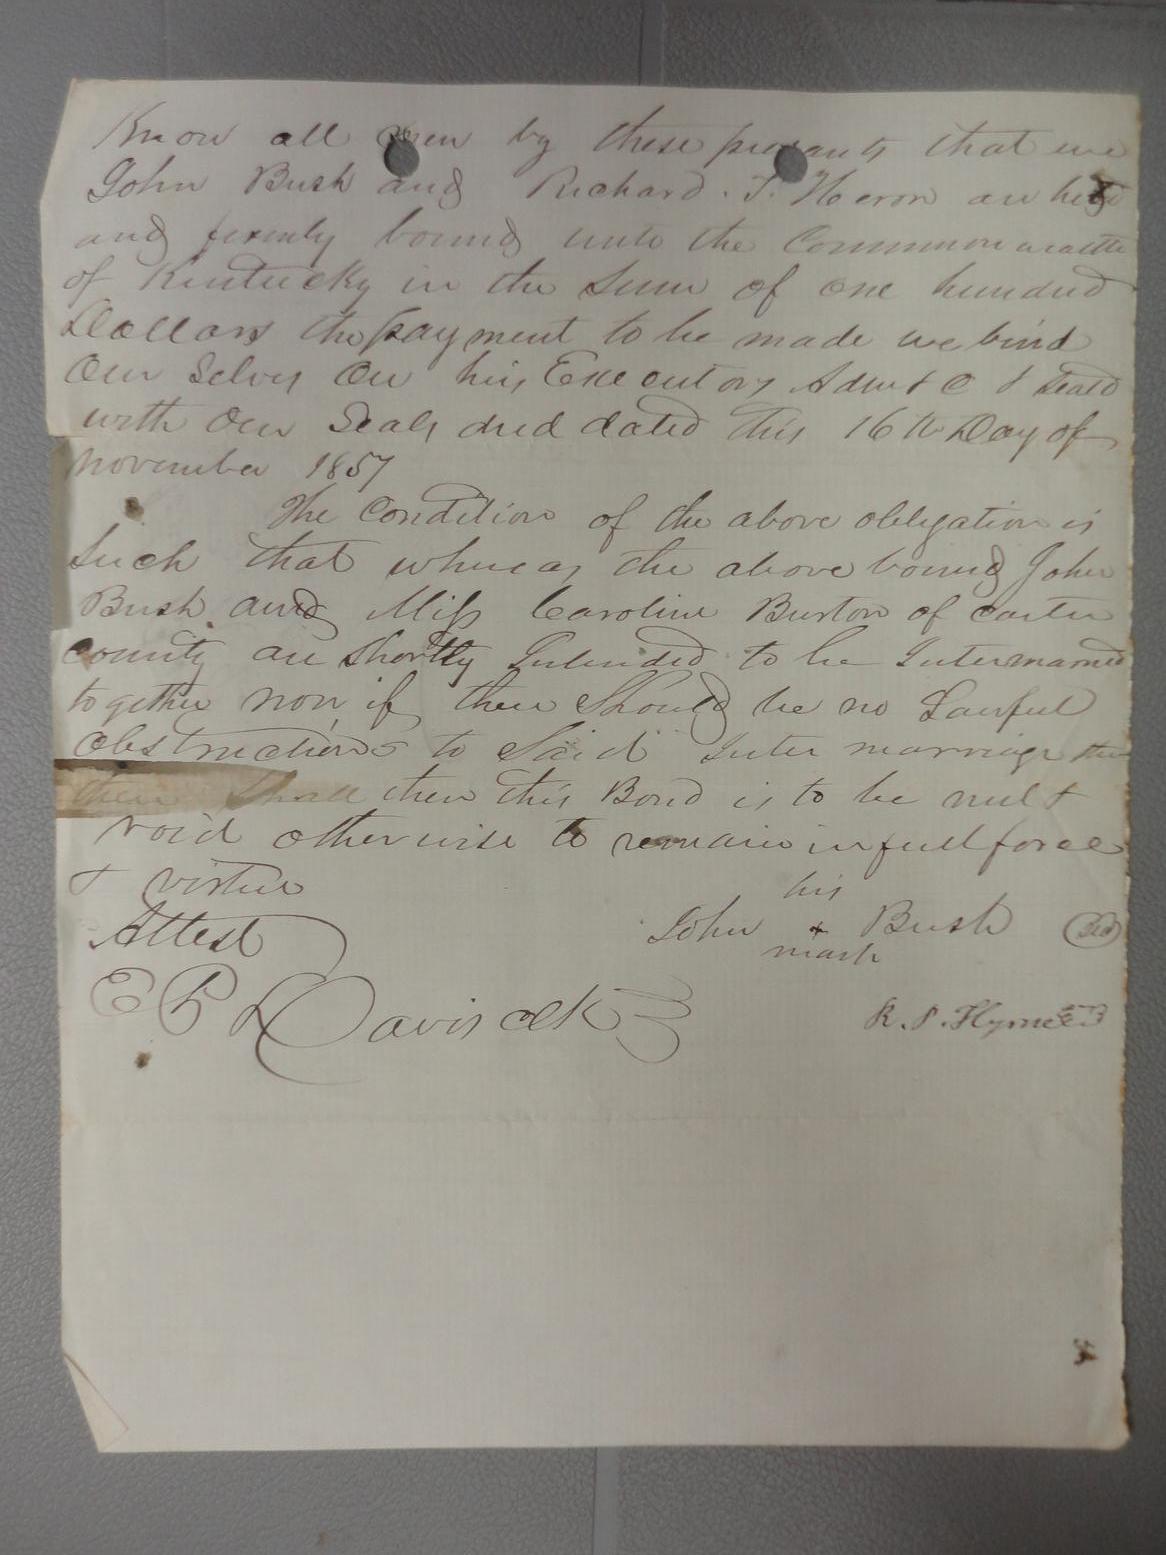 Know all men by these presants that we
John Bush and Richard. T. Heron are held
and firmly bound unto the Commonwealth
of Kentucky in the Sum of one hundred
Dollars the payment to be made we bind
Our Selves Our hiy Executors Adm & C & Seald
with Our Seals and dated this 16th Day of
November 1857
The Condition of the above obligation is
Such that whereas the above bound John
Bush and Miss Caroline Burton of Carter
County are Shortly Intended to be Intermarried
together now if there Should be no Lawful
obstructions to Said Inter marriage then
then Shall then this Bond is to be null &
void otherwise to remain in full force
& virtue
his
Attest John + Bush Sed
mark
E P Davis clk R. T. Hyrne